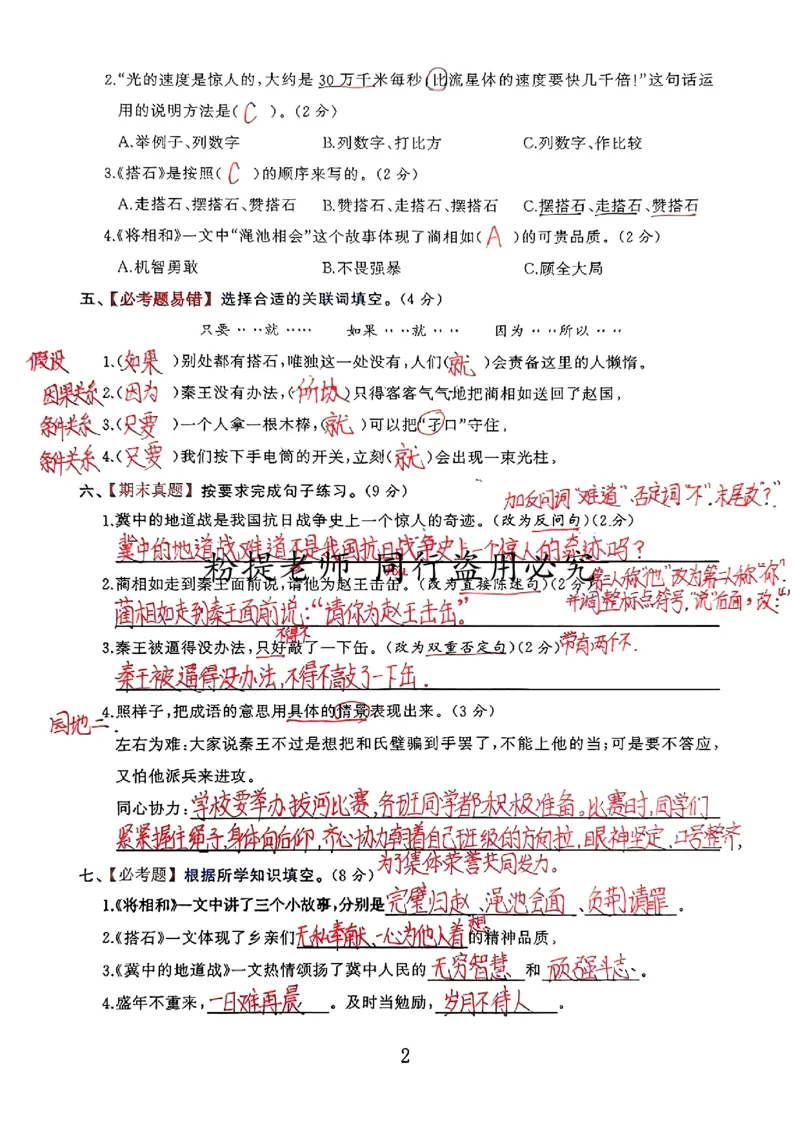 2.“光的速度是惊人的，大约是 30 万千米每秒，比流星体的速度要快几千倍！”这句话运
用的说明方法是( C )。(2 分)
A.举例子、列数字 B.列数字、打比方 C.列数字、作比较
3.《搭石》是按照( C )的顺序来写的。(2 分)
A.走搭石、摆搭石、赞搭石 B.赞搭石、走搭石、摆搭石 C.摆搭石、走搭石、赞搭石
4.《将相和》一文中“渑池相会”这个故事体现了蔺相如( A )的可贵品质。(2 分)
A.机智勇敢 B.不畏强暴 C.顾全大局
五、【必考题易错】选择合适的关联词填空。(4 分)
只要……就…… 如果……就…… 因为……所以……
假设 1.( 如果 )别处都有搭石，唯独这一处没有，人们( 就 )会责备这里的人懒惰。
因果关系 2.( 因为 )秦王没有办法，( 所以 )只得客客气气地把蔺相如送回了赵国，
条件关系 3.( 只要 )一个人拿一根木棒，( 就 )可以把“孑口”守住，
条件关系 4.( 只要 )我们按下手电筒的开关，立刻( 就 )会出现一束光柱，
六、【期末真题】按要求完成句子练习。(9 分)
加反问词“难道”、否定词“不”.末尾改“？”
1.冀中的地道战是我国抗日战争史上一个惊人的奇迹。(改为反问句)(2.分)
冀中的地道战难道不是我国抗日战争史上一个惊人的奇迹吗？
粉提老师 同行盗用必究
2.蔺相如走到秦王面前说，请他为赵王击缶。(改为直接陈述句)(2 分)
第三人称“他”改为第二人称“你”
并调整标点符号，“说”后面，改：“”
蔺相如走到秦王面前说：“请你为赵王击缶。”
不得不
3.秦王被逼得没办法，只好敲了一下缶。(改为双重否定句)(2 分) 带有两个不.
秦王被逼得没办法，不得不敲了一下缶.
园地二 4.照样子，把成语的意思用具体的情景表现出来。(3 分)
左右为难：大家说秦王不过是想把和氏璧骗到手罢了，不能上他的当；可是要不答应，
又怕他派兵来进攻。
同心协力：学校要举办拔河比赛，各班同学都积极准备。比赛时，同学们
紧紧握住绳子，身体向后仰，齐心协力朝着自己班级的方向拉，眼神坚定、口号整齐，
为了集体荣誉共同发力。
七、【必考题】根据所学知识填空。(8 分)
1.《将相和》一文中讲了三个小故事，分别是 完璧归赵 、渑池会面 、负荆请罪 。
2.《搭石》一文体现了乡亲们无私奉献、一心为他人着想的精神品质，
3.《冀中的地道战》一文热情颂扬了冀中人民的 无穷智慧 和 顽强斗志 。
4.盛年不重来，一日难再晨 。及时当勉励，岁月不待人 。
2